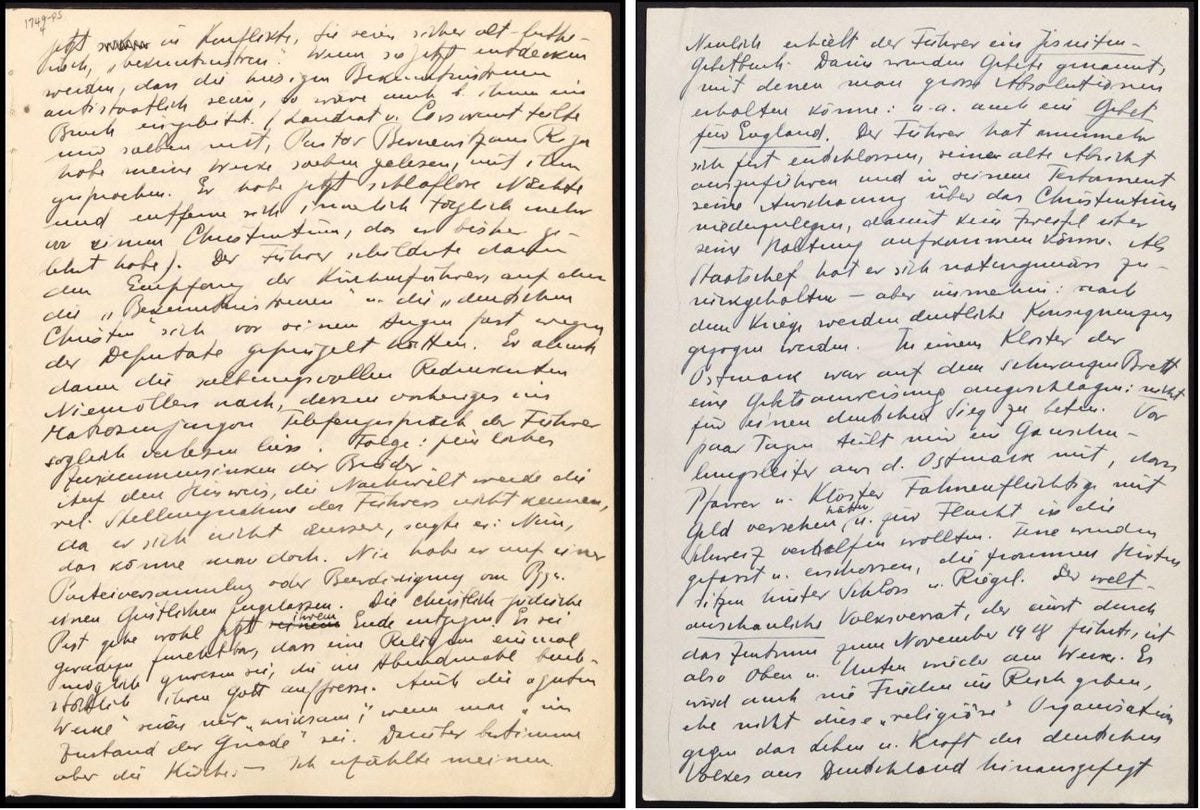 1749-PS
jetzt in Konflikte, sie seien sicher alt-luthe-
risch, "bekenntnistreu". Wenn sie jetzt entdecken
werden, dass die hiesigen Bekenntnistreuen
antistaatlich seien, so wäre auch b. ihnen ein
Bruch eingeleitet. (Landrat v. Corswant teilte
mir soeben mit, Pastor aus Ryga
habe meine Werke soeben gelesen, mit ihm
gesprochen. Er habe jetzt schlaflose Nächte
und entferne sich innerlich täglich mehr
von einem Christentum, das er bisher ge-
lehrt habe). Der Führer schilderte dann
den Empfang der Kirchenführer, auf dem
die "Bekenntnistreuen" u. die "deutschen
Christen" sich vor seinen Augen fast wegen
der Deputate geprügelt hätten. Er ahmte
dann die salbungsvollen Redensarten
Niemöllers nach, dessen vorheriges im
Matrosenjargon Telefongespräch der Führer
sogleich verlesen liess. Folge: peinliches
Zusammensinken der Brüder.
Auf den Hinweis, die Nachwelt werde die
rel. Stellungnahme des Führers nicht kennen,
da er sich nicht äussere, sagte er: Nein,
das könne man doch. Nie habe er auf einer
Parteiversammlung oder Beerdigung von Pgn.
einen Geistlichen zugelassen. Die christlich-jüdische
Pest gehe wohl jetzt ihrem Ende entgegen. Es sei
geradezu furchtbar, dass eine Religion einmal
möglich gewesen sei, die im Abendmahl buch-
stäblich ihren Gott auffresse. Auch die "guten
Werke" seien nur "wirksam", wenn man "im
Zustand der Gnade" sei. Darüber bestimme
aber die Kirche. – Ich erzählte meinen
Neulich erhielt der Führer ein Jesuiten-
Gebetbuch. Darin wurden Gebete genannt,
mit denen man grosse Absolutionen
erhalten könne: u.a. auch ein Gebet
für England. Der Führer hat nunmehr
sich fest entschlossen, seine alte Absicht
auszuführen und in seinem Testament
seine Anschauung über das Christentum
niederzulegen, damit kein Zweifel über
seine Haltung aufkommen könne. Als
Staatschef hat er sich naturgemäss zu-
rückgehalten – aber immerhin: nach
dem Kriege werden deutliche Konsequenzen
gezogen werden. In einem Kloster der
Ostmark war auf dem schwarzen Brett
eine Gebetsanweisung angeschlagen: nicht
für einen deutschen Sieg zu beten. Vor
paar Tagen teilt mir ein Gauschu-
lungsleiter aus d. Ostmark mit, dass
Pfarrer u. Klöster Fahnenflüchtige mit
Geld versehen hätten u. zur Flucht in die
Schweiz verhelfen wollten. Jene wurden
gefasst u. erschossen, die frommen Hirten
sitzen hinter Schloss u. Riegel. Der welt-
anschauliche Volksverrat, der einst durch
das Zentrum zum November 1918 führte, ist
also Oben u. Unten wieder am Werke. Es
wird auch nie Frieden im Reich geben,
ehe nicht diese "religiöse" Organisation
gegen das Leben u. Kraft des deutschen
Volkes aus Deutschland hinausgefegt